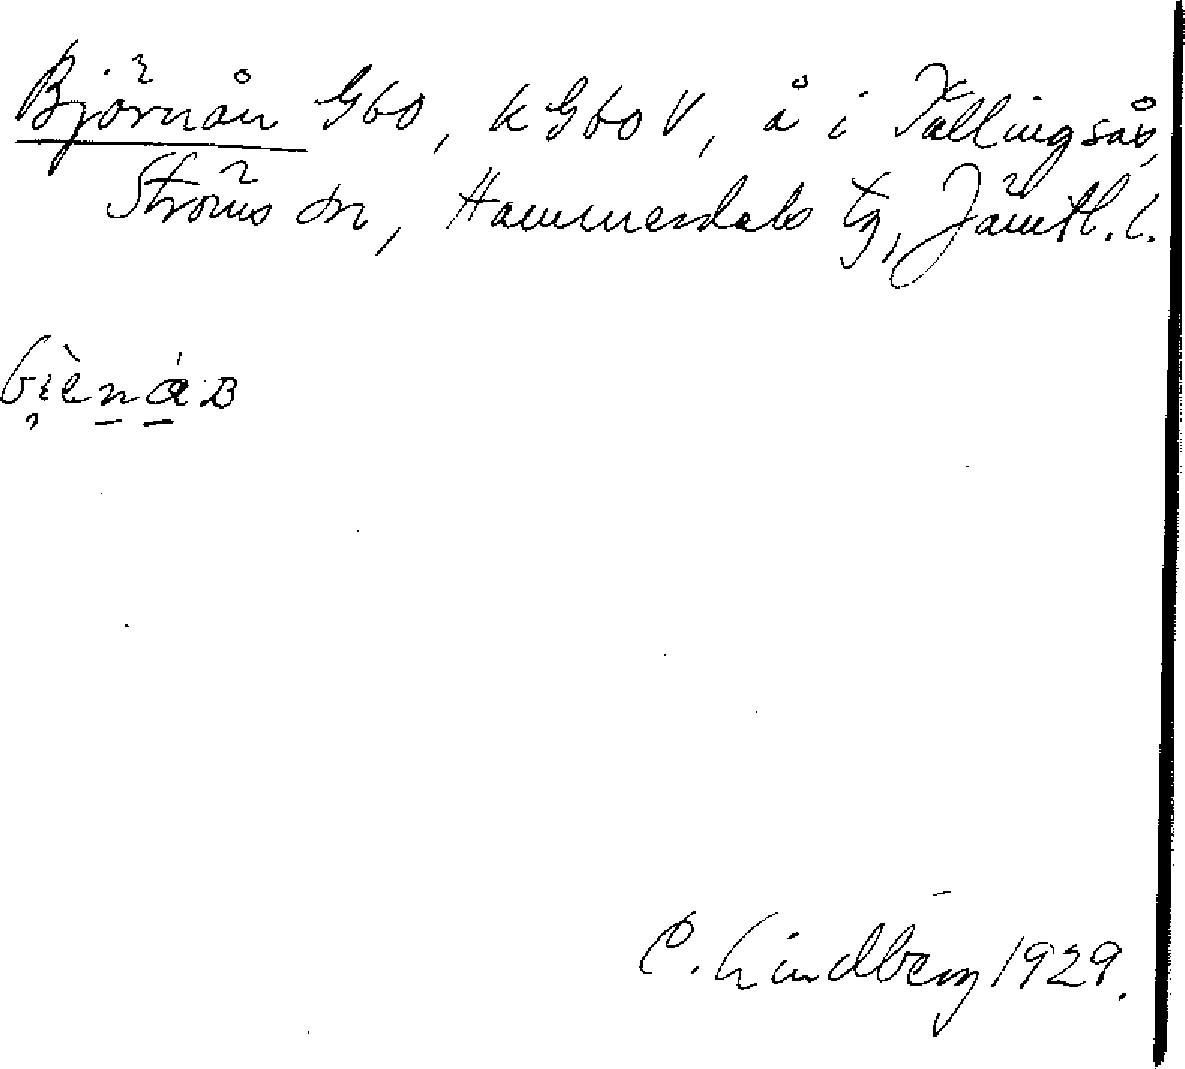 Björnån Gbo, kGbo V, å i Tällingsås,
Ströms sn, Hammerdals tg, Jämtl. l.
C. Lindberg 1929.